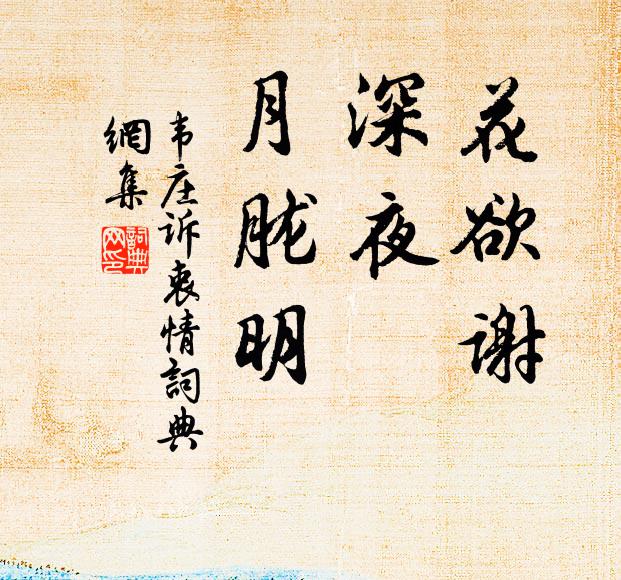 花欲谢
深夜
月胧明
韦庄诉衷情詞典
網集
詞典網印